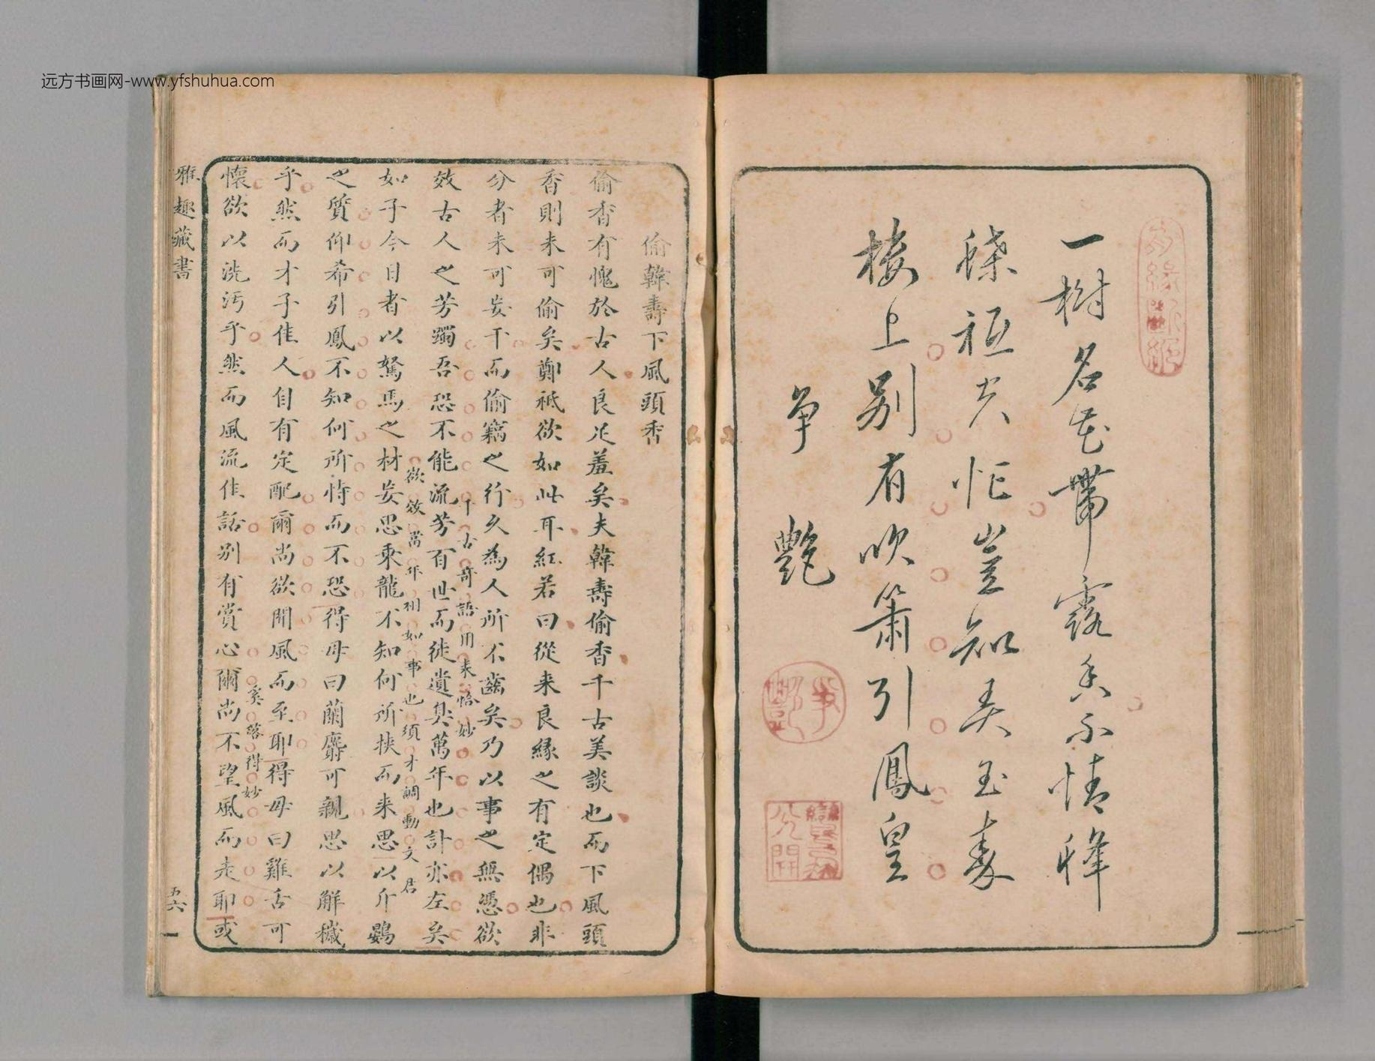 远方书画网-www.yfshuhua.com
一樹名花帶露香不情蜂
蝶祗尤忙豈知弄玉秦
樓上別有吹簫引鳳皇
爭艷
偷韓壽下風頭香
偷香有愧於古人良足羞矣夫韓壽偷香千古美談也而下風頭
香則未可偷矣鄭祗欲如此耳紅若曰從来良緣之有定偶也非
分者未可妄干而偷竊之行久為人所不齒矣乃以事之無憑欲
效古人之芳躅吾恐不能流芳百世而徒遺臭萬年也計亦左矣
千古奇語用来恰妙
如子今日者以駑馬之材妄思乘龍不知何所挾而来思以斥鷃
欲效當年相如事也須才調動文君
之質仰希引鳳不知何所恃而不恐得毋曰蘭麝可親思以解穢
乎然而才子佳人自有定配爾尚欲聞風而至耶得毋曰雞舌可
懷欲以洗污乎然而風流佳話別有賞心爾尚不望風而走耶或
奚落得妙
雅趣藏書
五六